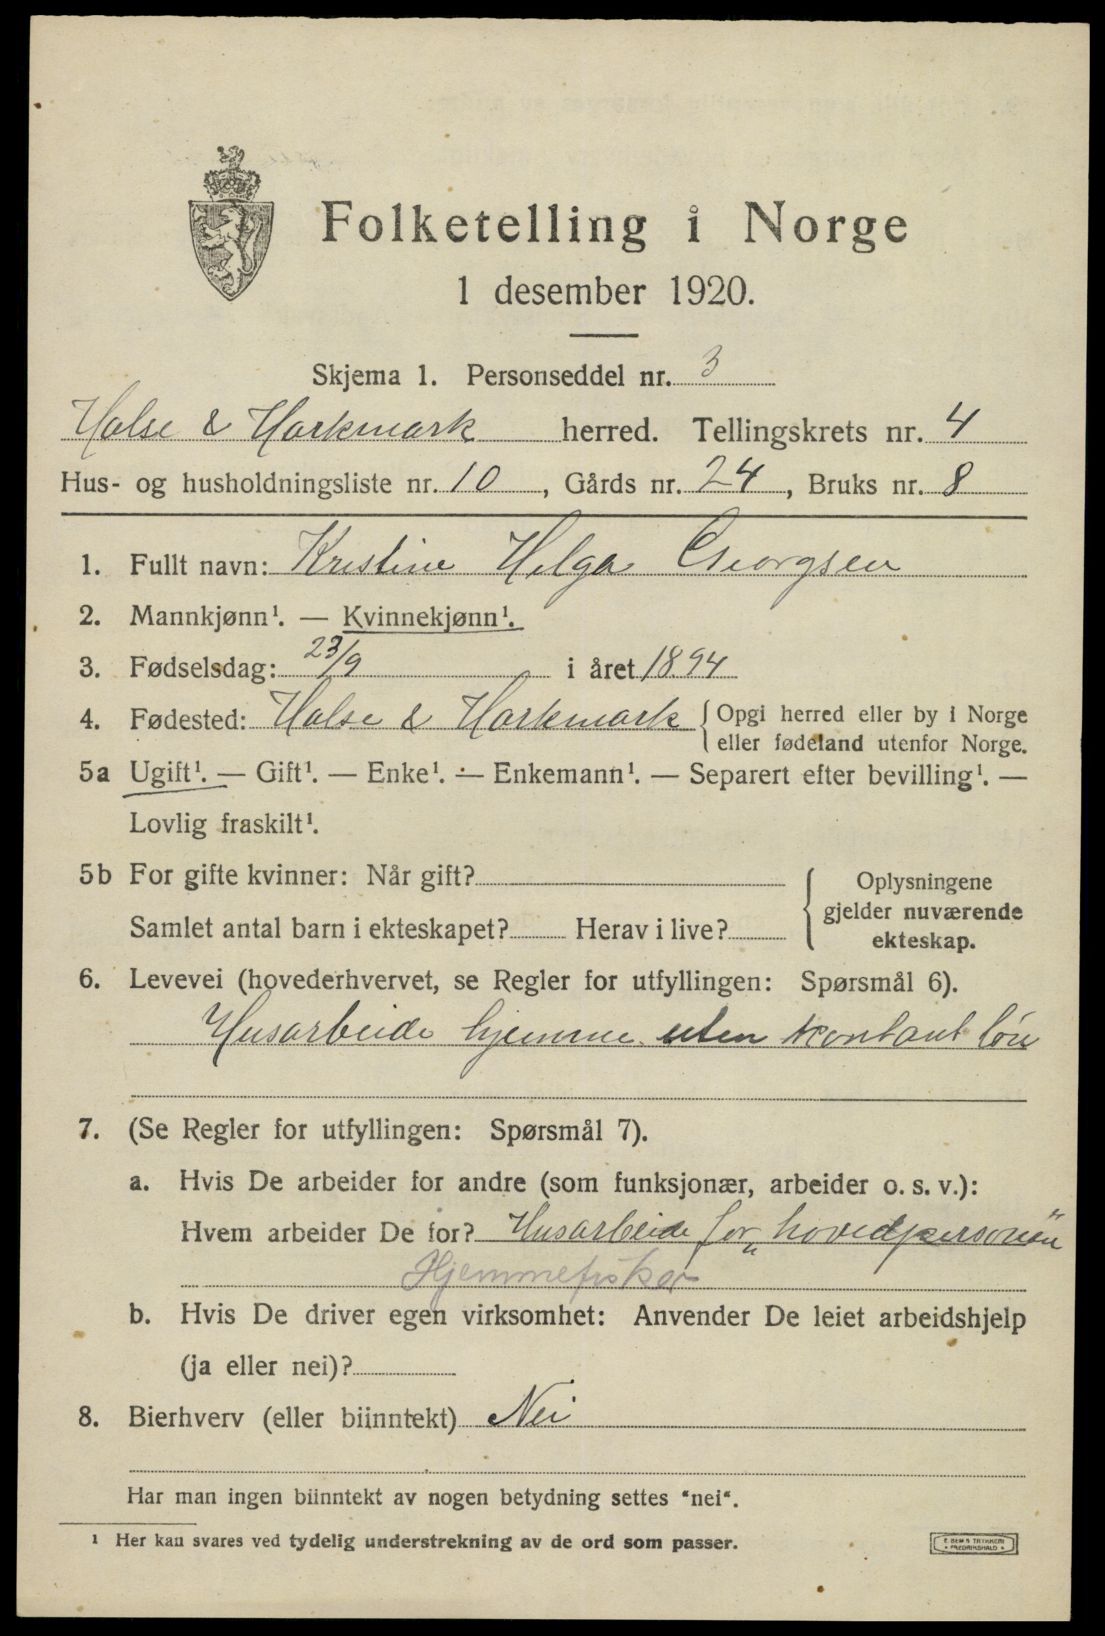 Folketelling i Norge
1 desember 1920.
Skjema 1. Personseddel nr. 3
Halse & Harkmark herred. Tellingskrets nr. 4
Hus- og husholdningsliste nr. 10, Gårds nr. 24, Bruks nr. 8
1. Fullt navn: Kristine Helga Georgsen
2. Mannkjønn¹. — Kvinnekjønn¹.
3. Fødselsdag: 23/9 i året 1894
4. Fødested: Halse & Harkmark { Opgi herred eller by i Norge
eller fødeland utenfor Norge.
5a Ugift¹. — Gift¹. — Enke¹. — Enkemann¹. — Separert efter bevilling¹. —
Lovlig fraskilt¹.
5b For gifte kvinner: Når gift?
Samlet antal barn i ekteskapet? Herav i live?
Oplysningene
gjelder nuværende
ekteskap.
6. Levevei (hovederhvervet, se Regler for utfyllingen: Spørsmål 6).
Husarbeide hjemme uten kontant løn
7. (Se Regler for utfyllingen: Spørsmål 7).
a. Hvis De arbeider for andre (som funksjonær, arbeider o. s. v.):
Hvem arbeider De for? Husarbeide for „hovedpersonen"
Hjemmefisker
b. Hvis De driver egen virksomhet: Anvender De leiet arbeidshjelp
(ja eller nei)?
8. Bierhverv (eller biinntekt) Nei
Har man ingen biinntekt av nogen betydning settes "nei".
¹ Her kan svares ved tydelig understrekning av de ord som passer.
E. SEM'S TRYKKERI
FREDRIKSHALD